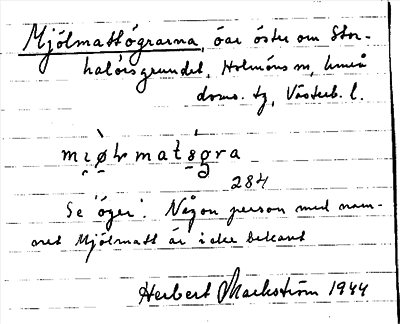 Mjölmatsögrarna, öar öster om Stor-
halörsgrundet, Holmöns sn, Umeå
doms. tg, Västerb. l.
mɩ̯ø̀ɫmatsó̱gra
284
Se 'öger'. Någon person med nam-
net Mjölmatt är icke bekant
Herbert Markström 1944